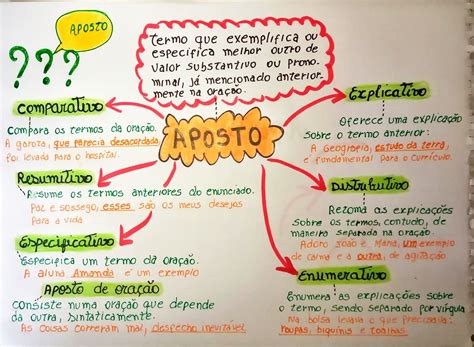 APOSTO
???
Termo que exemplifica ou
especifica melhor outro de
valor substantivo ou prono.
minal, já mencionado anterior.
mente na oração.
APOSTO
Comparativo
Compara os termos da oração.
A garota, que parecia desacordada,
foi levada para o hospital.
Resumitivo
Resume os termos anteriores do enunciado.
Paz e sossego, esses são os meus desejos
Para a vida
Especificativo
Especifica um termo da oração
A aluna Amanda é um exemplo
Aposto de oração
Consiste numa oração que depende
da outra, sintaticamente.
As coisas correram mal, desfecho inevitável.
Explicativo
Oferece uma explicação
sobre o termo anterior:
A Geografia, estudo da terra,
é fundamental para o currículo.
Distributivo
Retoma as explicações
sobre os termos, contudo, de
maneira separada na oração.
Adoro João e Maria, um exemplo
de calma e a outra, de agitação
Enumerativo
Enumera as explicações sobre
o termo, sendo separado por vírgula
Na bolsa levava o que precisava:
roupas, biquínis e toalhas.